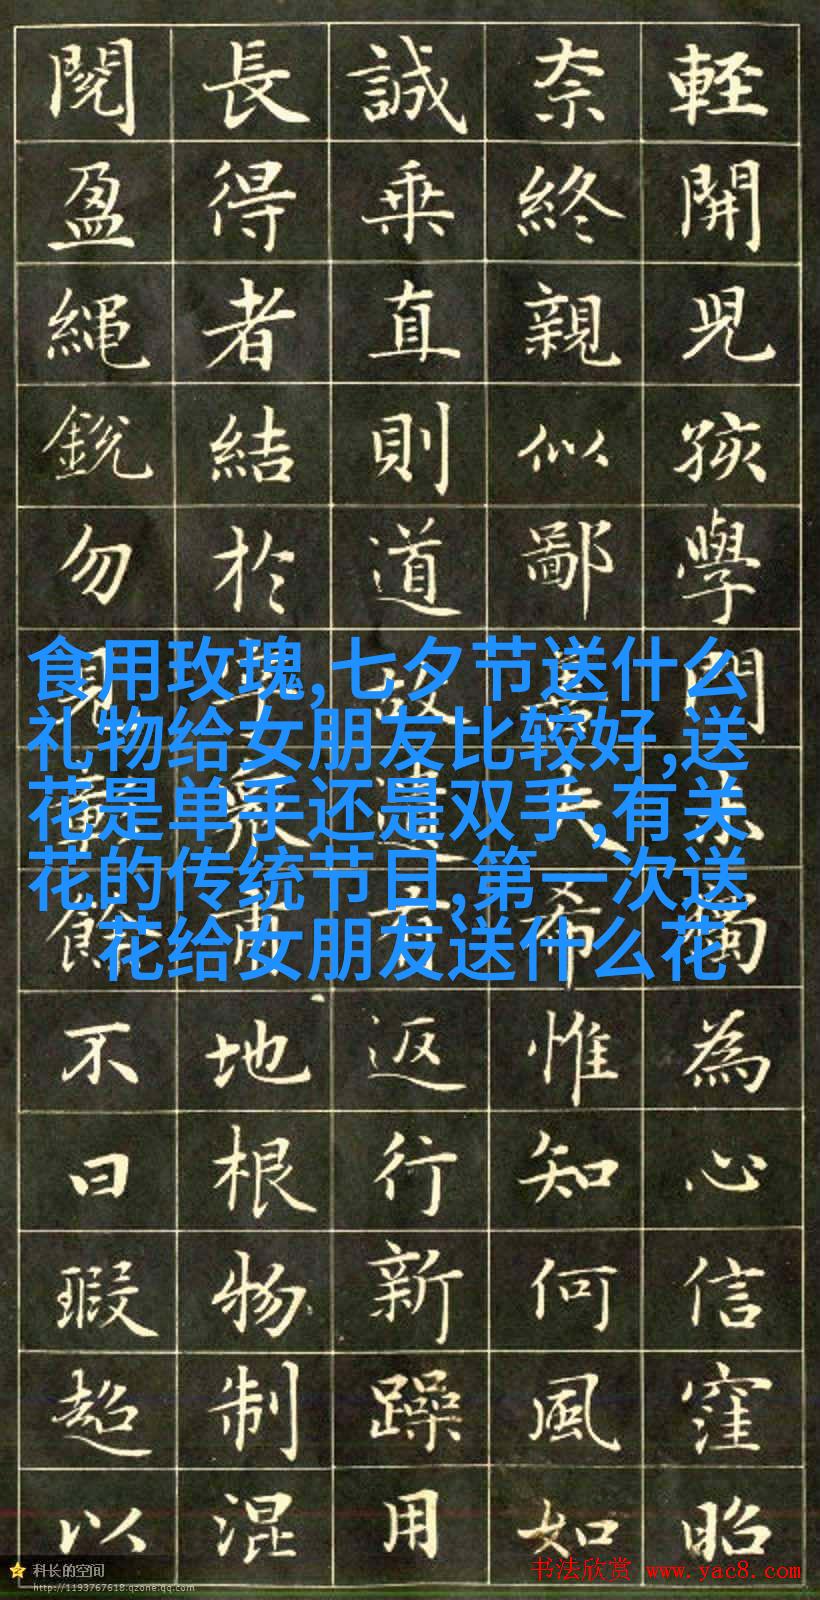 輕開兒孩學門獨為心信窪昭
奈終親似鄙夫希惟知何風如
誠乗直則道故遺返行新躁用
長得者結於衆甫地根物制混
閱盈繩銳勿見餘不曰瑕超以
食用玫瑰,七夕节送什么
礼物给女朋友比较好,送
花是单手还是双手,有关
花的传统节日,第一次送
花给女朋友送什么花
科长的空间
http://1193767618.qzone.qq.com
书法欣赏 www.yac8.com